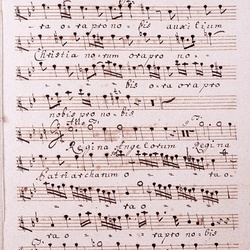 ra ora pro nobis auxilium
Christianorum ora pro
bis ora pro
nobis pro nobis
Regina Angelorum Regina
Patriarcharum o ra o
ra o ra o
ra ora pro nobis